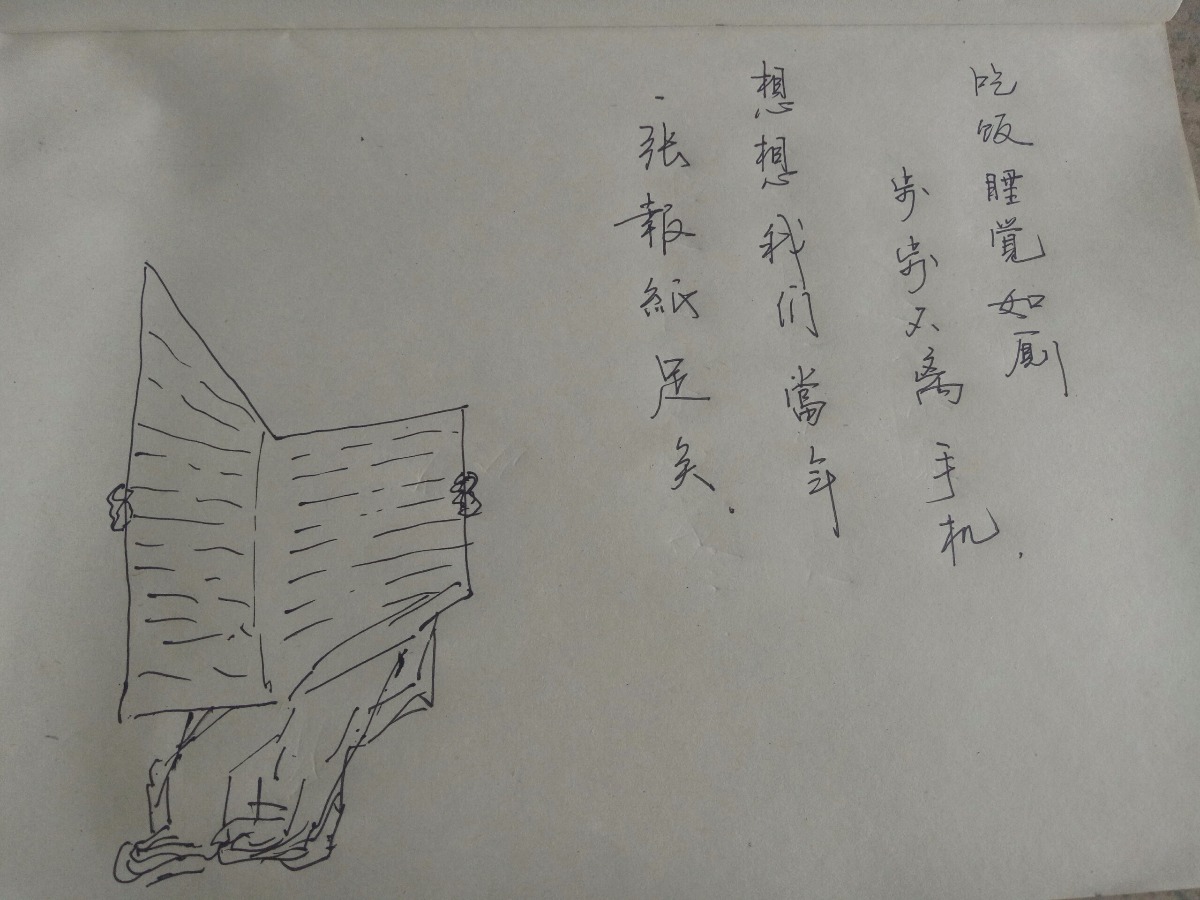 吃饭睡觉如厕
步步不离手机.
想想我们當年
一张報紙足矣.